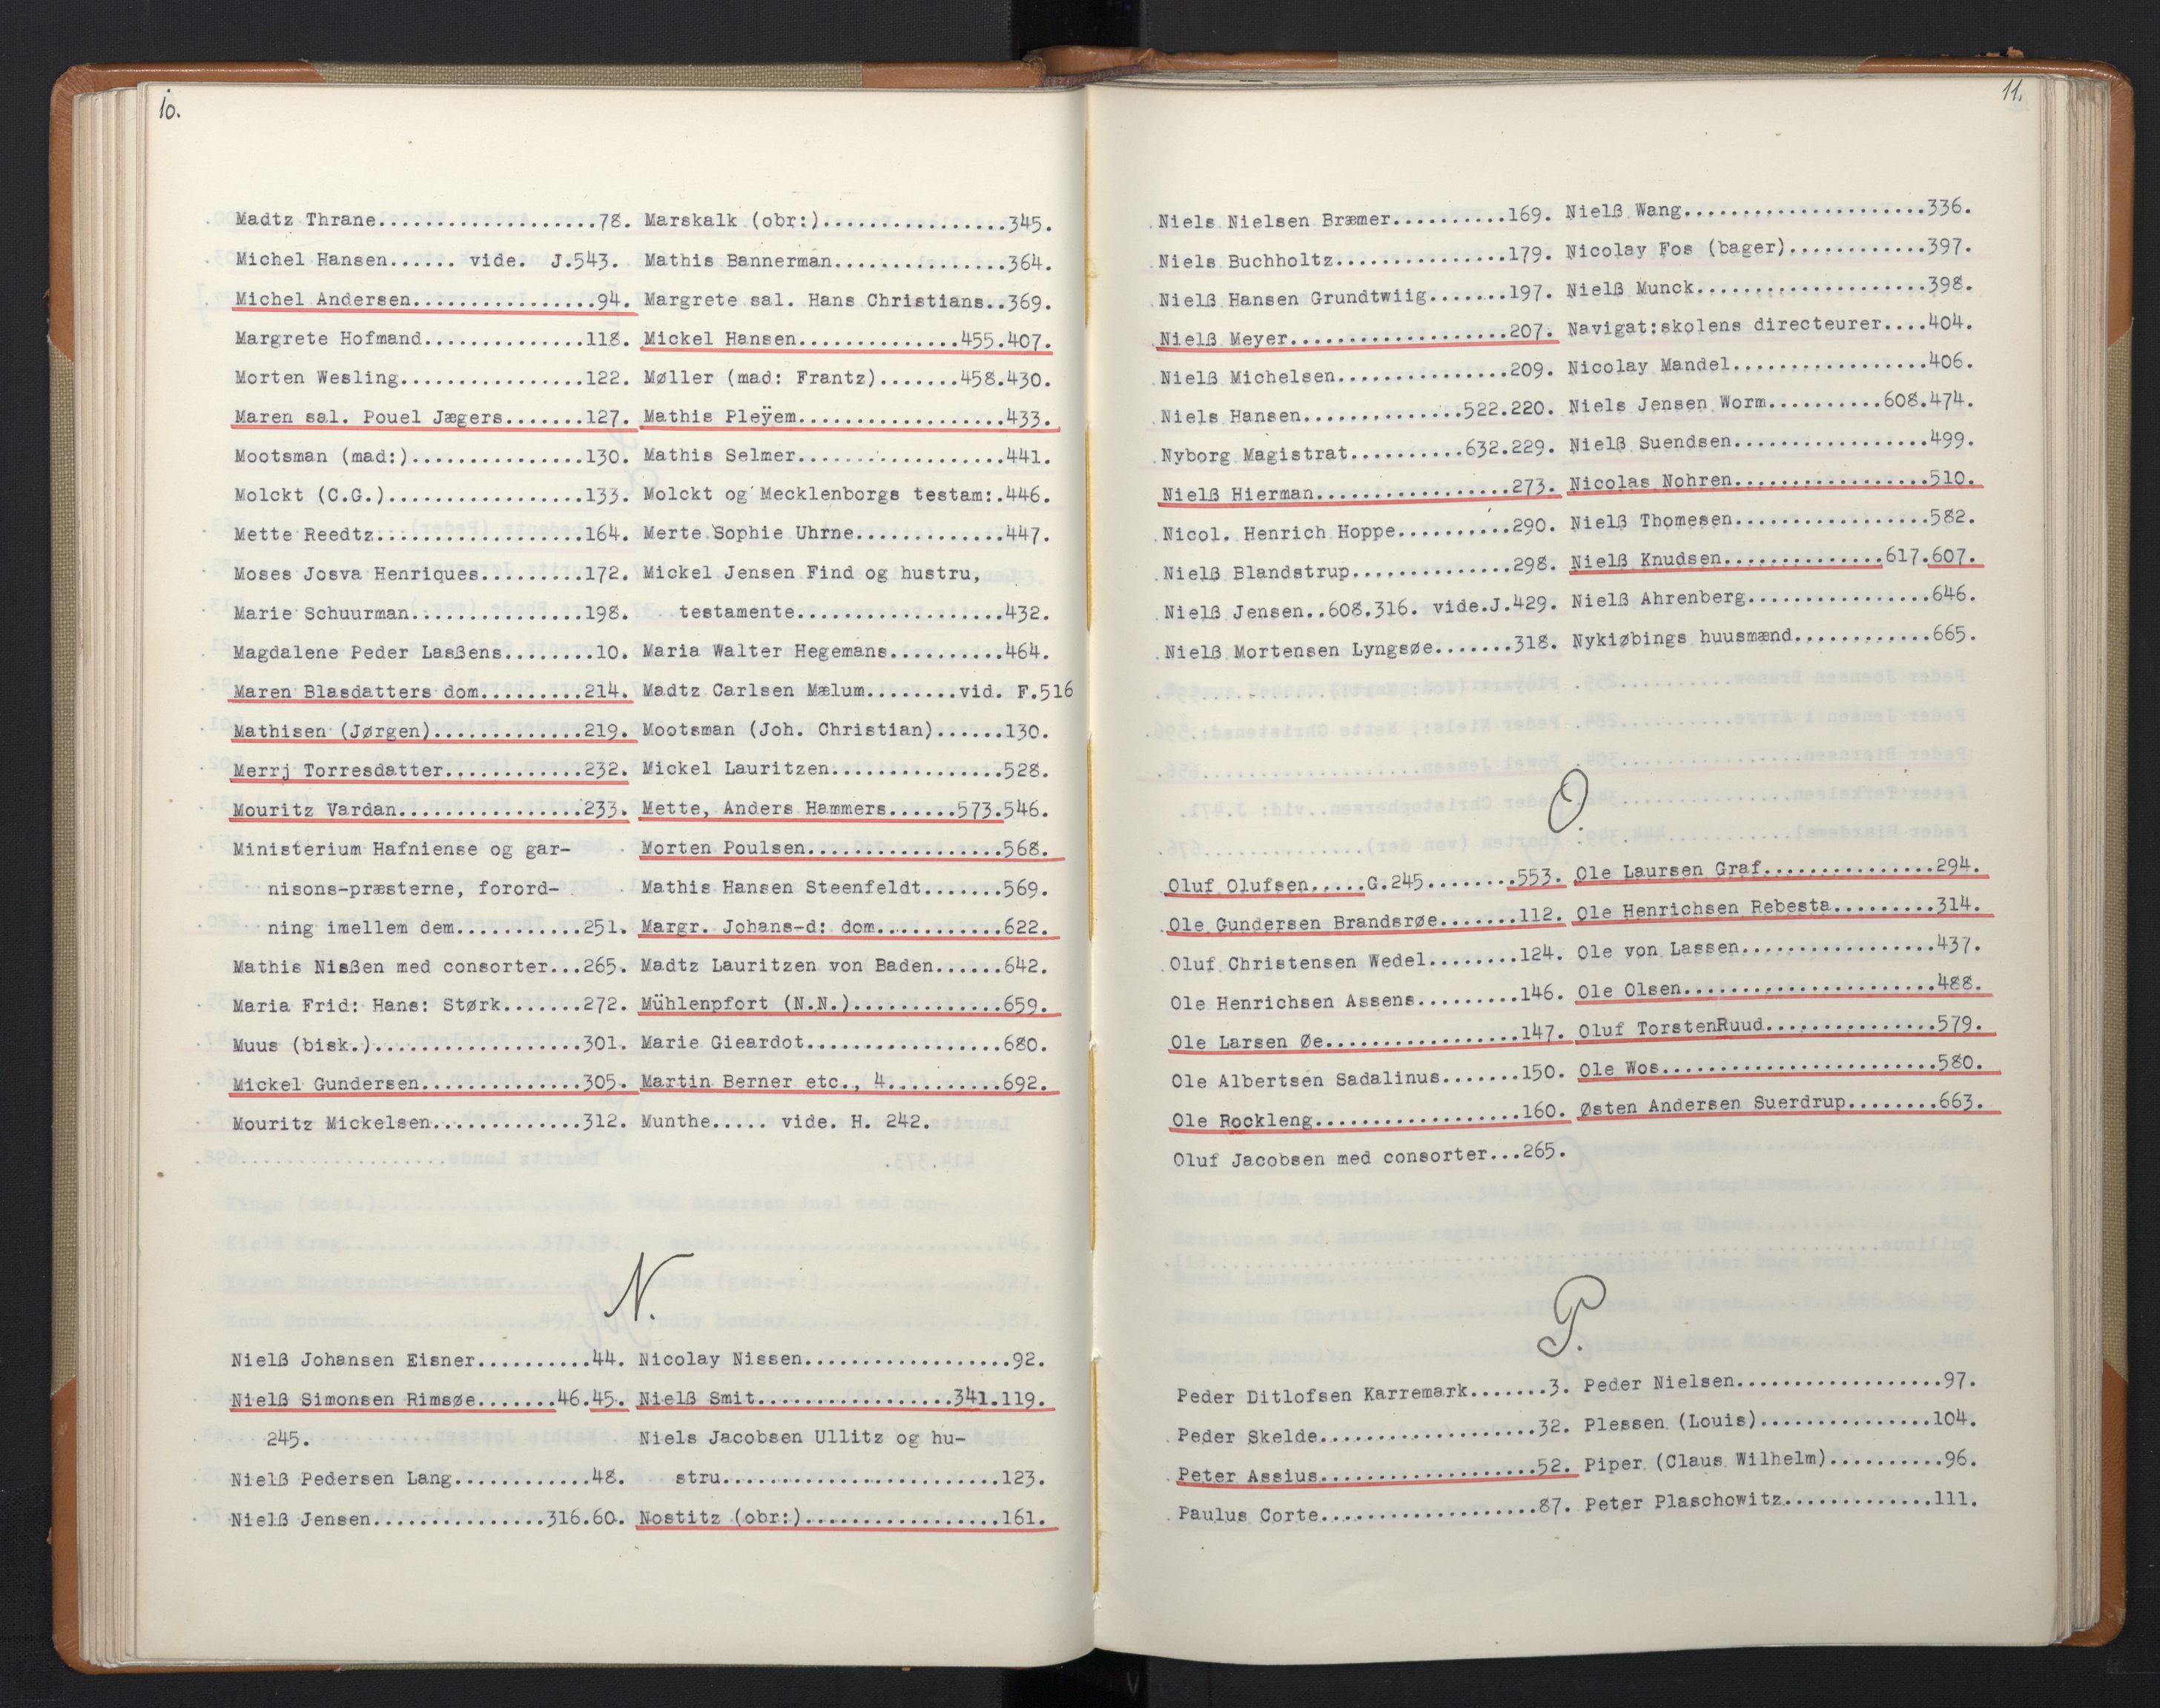 10.
Madtz Thrane...................78.
Michel Hansen...... vide. J.543.
Michel Andersen................94.
Margrete Hofmand..............118.
Morten Wesling................122.
Maren sal. Pouel Jægers.......127.
Mootsman (mad:)...............130.
Molckt (C.G.).................133.
Mette Reedtz..................164.
Moses Josva Henriques.........172.
Marie Schuurman...............198.
Magdalene Peder Lasßens........10.
Maren Blasdatters dom.........214.
Mathisen (Jørgen).............219.
Merrj Torresdatter............232.
Mouritz Vardan................233.
Ministerium Hafniense og gar-
nisons-præsterne, forord-
ning imellem dem...........251.
Mathis Nisßen med consorter...265.
Maria Frid: Hans: Størk.......272.
Muus (bisk.)..................301.
Mickel Gundersen..............305.
Mouritz Mickelsen.............312.
Marskalk (obr:)................345.
Mathis Bannerman...............364.
Margrete sal. Hans Christians..369.
Mickel Hansen..............455.407.
Møller (mad: Frantz).......458.430.
Mathis Pleÿem..................433.
Mathis Selmer..................441.
Molckt og Mecklenborgs testam:.446.
Merte Sophie Uhrne.............447.
Mickel Jensen Find og hustru,
testamente..................432.
Maria Walter Hegemans..........464.
Madtz Carlsen Mælum........vid. F.516
Mootsman (Joh. Christian)......130.
Mickel Lauritzen...............528.
Mette, Anders Hammers......573.546.
Morten Poulsen.................568.
Mathis Hansen Steenfeldt.......569.
Margr. Johans-d: dom...........622.
Madtz Lauritzen von Baden......642.
Mühlenpfort (N.N.).............659.
Marie Gieardot.................680.
Martin Berner etc., 4..........692.
Munthe..... vide. H. 242.
N.
Nielß Johansen Eisner..........44.
Nielß Simonsen Rimsøe.......46.45.
245.
Nielß Pedersen Lang............48.
Nielß Jensen...............316.60.
Nicolay Nissen..................92.
Nielß Smit.................341.119.
Niels Jacobsen Ullitz og hu-
stru........................123.
Nostitz (obr:).................161.
11.
Niels Nielsen Bræmer..........169.
Niels Buchholtz...............179.
Nielß Hansen Grundtwiig.......197.
Nielß Meyer...................207.
Nielß Michelsen...............209.
Niels Hansen..............522.220.
Nyborg Magistrat..........632.229.
Nielß Hierman.................273.
Nicol. Henrich Hoppe..........290.
Nielß Blandstrup..............298.
Nielß Jensen..608.316. vide.J.429.
Nielß Mortensen Lyngsøe.......318.
Nielß Wang.....................336.
Nicolay Fos (bager)............397.
Nielß Munck....................398.
Navigat:skolens directeurer....404.
Nicolay Mandel.................406.
Niels Jensen Worm..........608.474.
Nielß Suendsen.................499.
Nicolas Nohren.................510.
Nielß Thomesen.................582.
Nielß Knudsen..............617.607.
Nielß Ahrenberg................646.
Nykiøbings huusmænd............665.
O.
Oluf Olufsen.....G.245........553.
Ole Gundersen Brandsrøe.......112.
Oluf Christensen Wedel........124.
Ole Henrichsen Assens.........146.
Ole Larsen Øe.................147.
Ole Albertsen Sadalinus.......150.
Ole Rockleng..................160.
Oluf Jacobsen med consorter...265.
Ole Laursen Graf...............294.
Ole Henrichsen Rebesta.........314.
Ole von Lassen.................437.
Ole Olsen......................488.
Oluf TorstenRuud...............579.
Ole Wos........................580.
Østen Andersen Suerdrup........663.
P.
Peder Ditlofsen Karremark.......3.
Peder Skelde...................32.
Peter Assius...................52.
Paulus Corte...................87.
Peder Nielsen..................97.
Plessen (Louis)...............104.
Piper (Claus Wilhelm)..........96.
Peter Plaschowitz.............111.